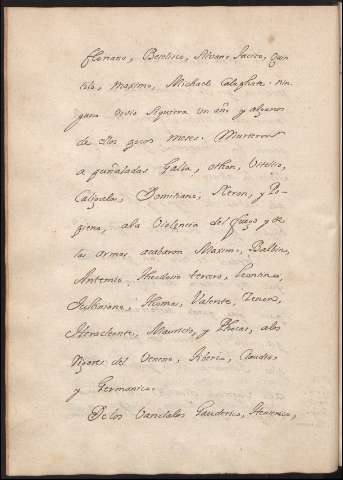 floriano, Basilisco, Silvano, Tacito, Quin
tilo, Maximo, Michael Calaphate. nin
guno vivio siquiera un año y algunos
de ellos pocos meses. Murieron
a puñaladas Galva, othon, Vitelio,
Caligula, Domitiano, Neron, y Po
piena, a la Violencia del fuego y de
las armas acabaron Maximo, Balbino,
Antemio, theodosio tercero, Leoncio,
Justiniano, thomas, Valente, Zenon,
Heracleonte, Mauricio, y Phocas, a los
rigores del Veneno, tiberio, Claudio,
y Germanico.
De los Vandalos Gunderico, Henerico,